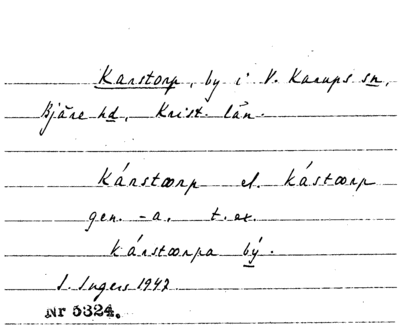 Karstorp, by i V. Karups sn,
Bjäre hd, Krist. län.
Kárstærp el. kástærp
gen. -a, t. ex.
kárstærpa bý.
I. Ingers 1942
Nr 5324.